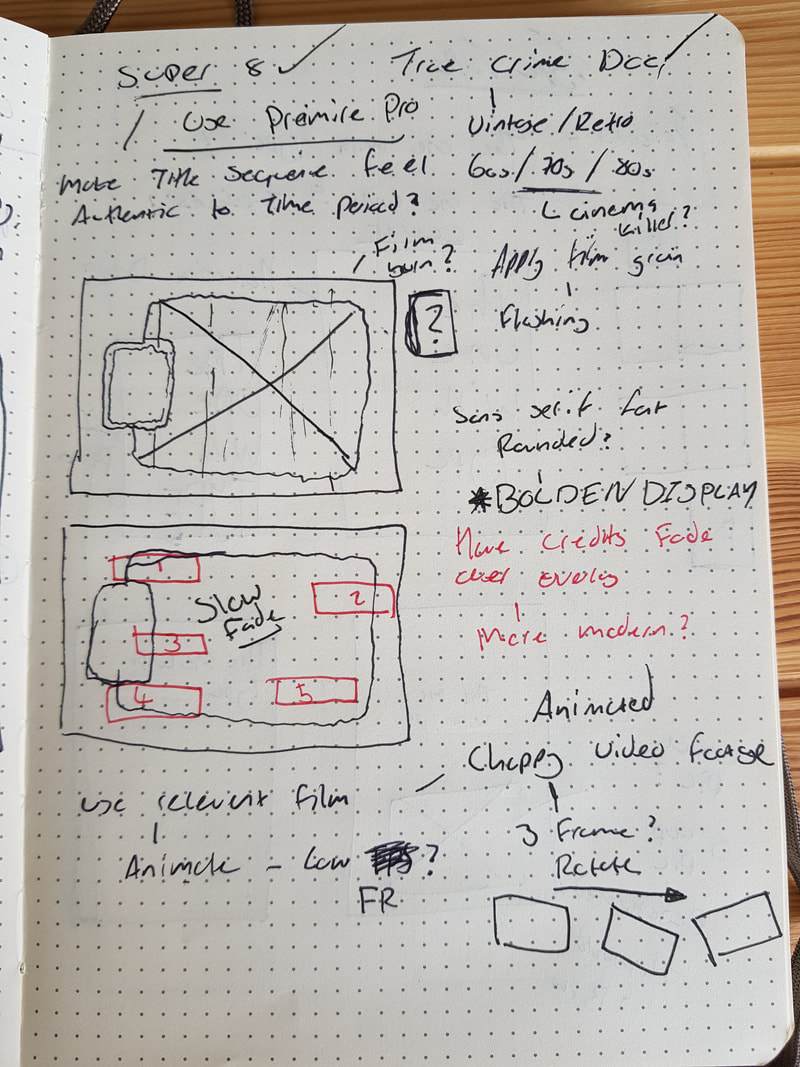 Super 8
True Crime Doc
/ Use Premire Pro
Vintage/Retro
Make Title Sequence feel
Authentic to Time Period?
60s/70s/80s
cinema
killer?
Film
burn?
Apply film grain
Flashing
?
Sans serif font
Rounded?
*BOLDEN DISPLAY
Have credits Fade
over overlay
More modern?
1
Slow
Fade
2
3
4
5
Animated
Choppy video footage
use relevent film
Animate - Low ?
FR
3 Frame?
Rotate